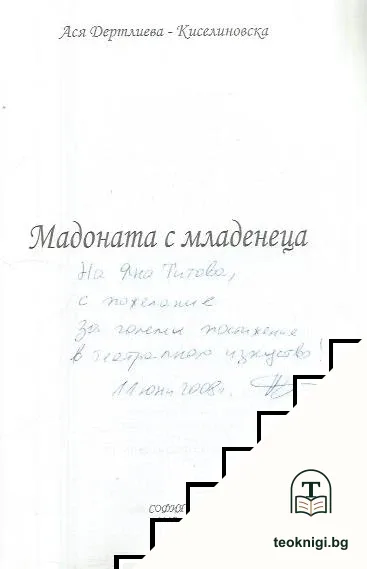 Ася Дертлиева - Киселиновска
Мадоната с младенеца
На Яна Титова,
с пожелание
за големи постижения
в театралното изкуство!
11 юни 2008 г.
teoknigi.bg